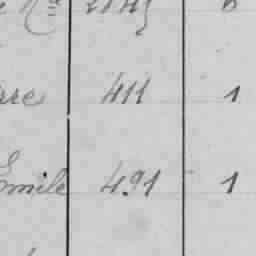 rre 411 1
Emile 491 1